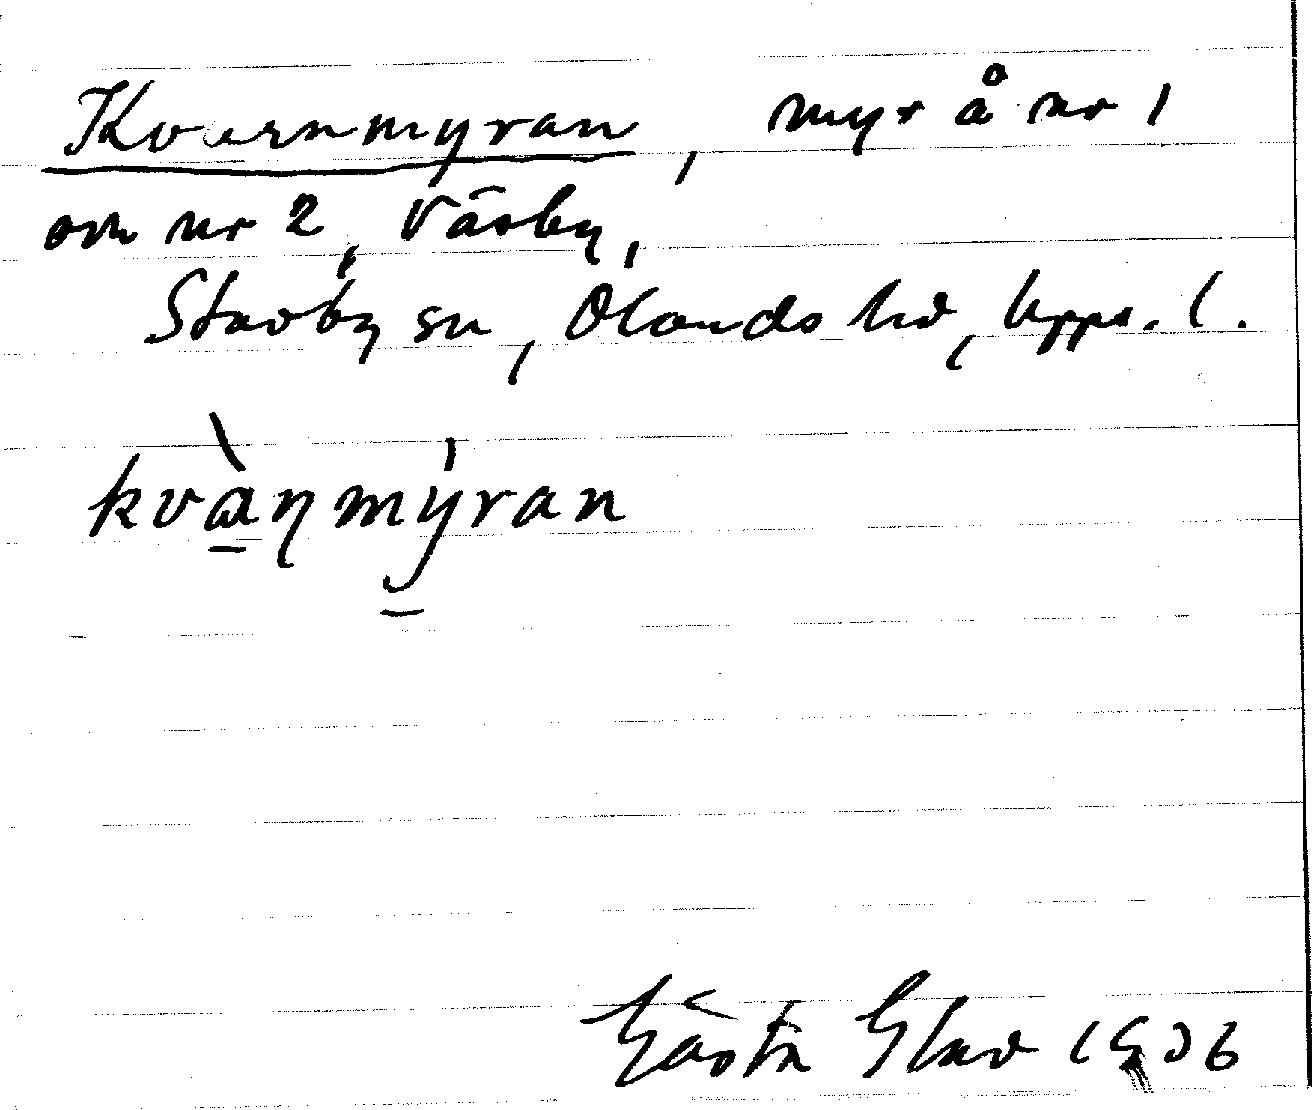 Kvarnmyran, myr å nr 1
om nr 2, Väsby,
Stavby sn, Olands hd, Upps. l.
kvàṇmy̍ran
Gösta Glad 1936